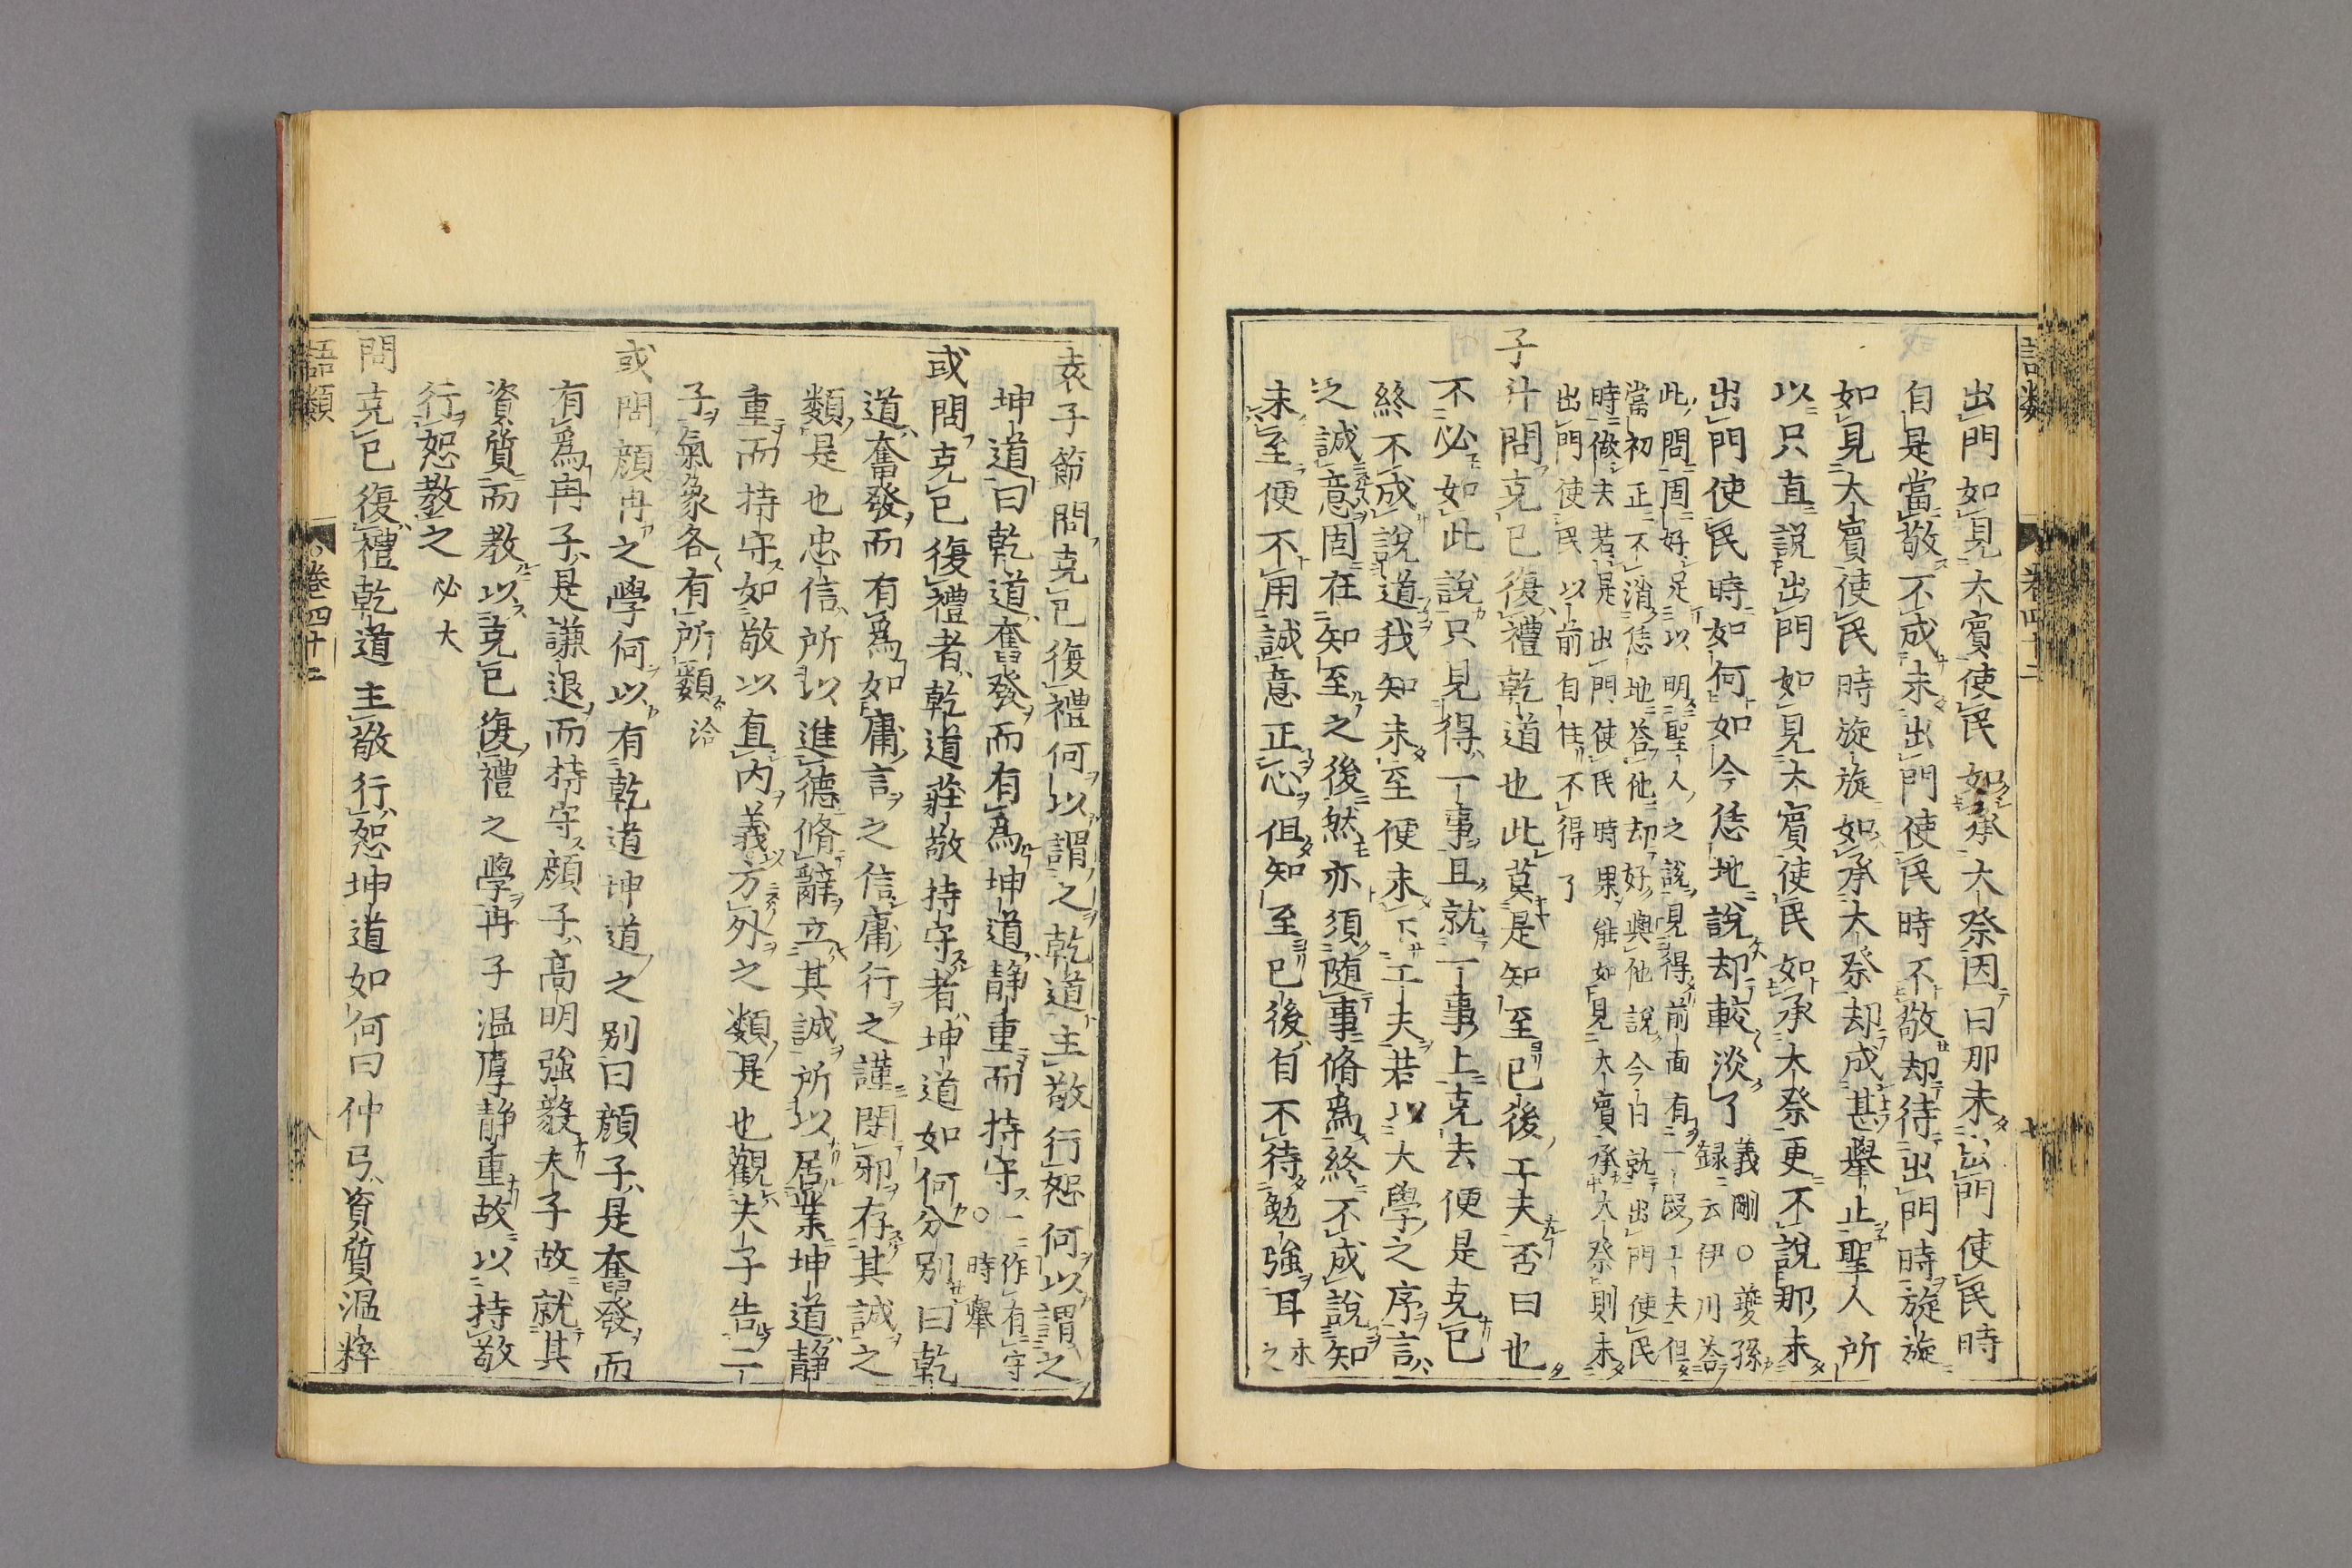 語類 卷四十二 七
出門如見大賓使民如承大祭因曰那未出門使民時
自是當敬不成未出門使民時不敬却待出門時旋旋
如見大賓使民時旋旋如承大祭却成甚舉止聖人所
以只直說出門如見大賓使民如承大祭更不說那未
出門使民時如何如今恁地說却較淡了
義剛○夔孫
録云伊川荅
此問固好足以明聖人之說見得前面有一段工夫但
當初正不消恁地荅他却好與他說今日就出門使民
時做去若是出門使民時果能如見大賓承大祭則未
出門使民以前自住不得了
子升問克己復禮乾道也此莫是知至已後工夫否曰也
不必如此說只見得一事且就一事上克去便是克己
終不成說道我知未至便未下工夫若以大學之序言
之誠意固在知至之後然亦須隨事脩爲終不成說知
未至便不用誠意正心但知至已後自不待勉強耳
木
之
袁子節問克己復禮何以謂之乾道主敬行恕何以謂之
坤道曰乾道奮發而有爲坤道靜重而持守
一作有守
○時舉
或問克己復禮者乾道莊敬持守者坤道如何分別曰乾
道奮發而有爲如庸言之信庸行之謹閑邪存其誠之
類是也忠信所以進德脩辭立其誠所以居業坤道靜
重而持守如敬以直內義以方外之類是也觀夫子告二
子氣象各有所類 洽
或問顔冉之學何以有乾道坤道之別曰顔子是奮發而
有爲冉子是謙退而持守顔子高明強毅夫子故就其
資質而教以克己復禮之學冉子溫厚靜重故以持敬
行恕教之 必大
問克己復禮乾道主敬行恕坤道如何曰仲弓資質溫粹
語類 ○卷四十二 八